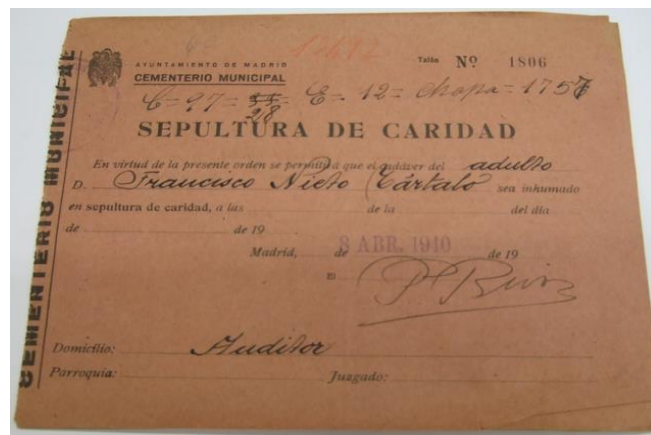 AYUNTAMIENTO DE MADRID
CEMENTERIO MUNICIPAL
Talón Nº 1806
C= 97= 28 E= 12= Chapa= 1757
SEPULTURA DE CARIDAD
En virtud de la presente orden se permitirá que el cadáver del adulto
D. Francisco Nieto Cártalo sea inhumado
en sepultura de caridad, a las de la del día
de de 19
Madrid, de 8 ABR. 1940 de 19
Domicilio: Auditor
Parroquia: Juzgado:
CEMENTERIO MUNICIPAL